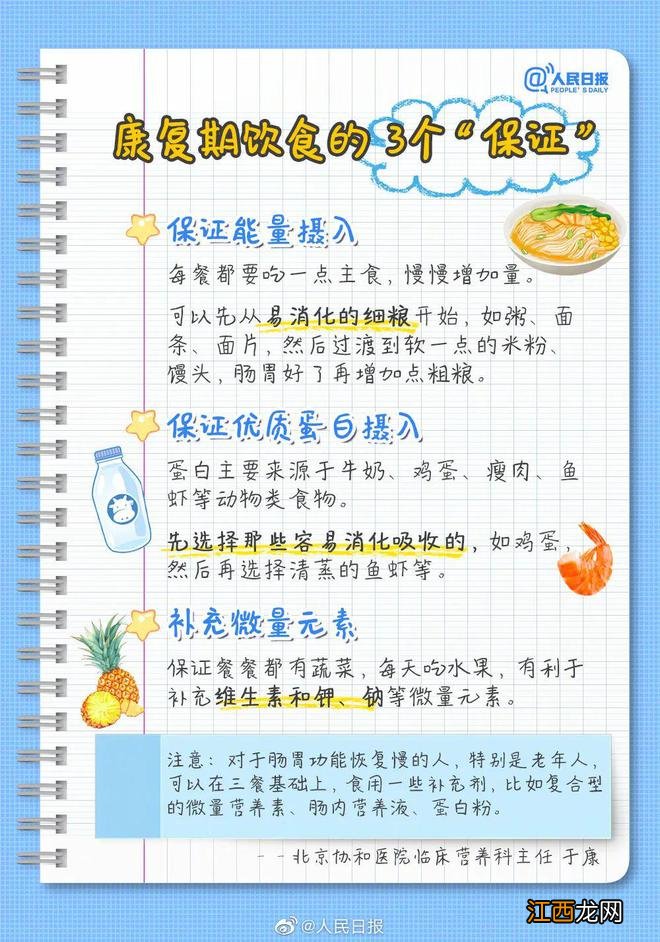 @人民日报
PEOPLE'S DAILY
康复期饮食的3个“保证”
保证能量摄入
每餐都要吃一点主食，慢慢增加量。
可以先从易消化的细粮开始，如粥、面
条、面片，然后过渡到软一点的米粉、
馒头，肠胃好了再增加点粗粮。
保证优质蛋白摄入
蛋白主要来源于牛奶、鸡蛋、瘦肉、鱼
虾等动物类食物。
先选择那些容易消化吸收的，如鸡蛋，
然后再选择清蒸的鱼虾等。
补充微量元素
保证餐餐都有蔬菜，每天吃水果，有利于
补充维生素和钾、钠等微量元素。
注意：对于肠胃功能恢复慢的人，特别是老年人，
可以在三餐基础上，食用一些补充剂，比如复合型
的微量营养素、肠内营养液、蛋白粉。
--北京协和医院临床营养科主任 于康
@人民日报
江西龙网